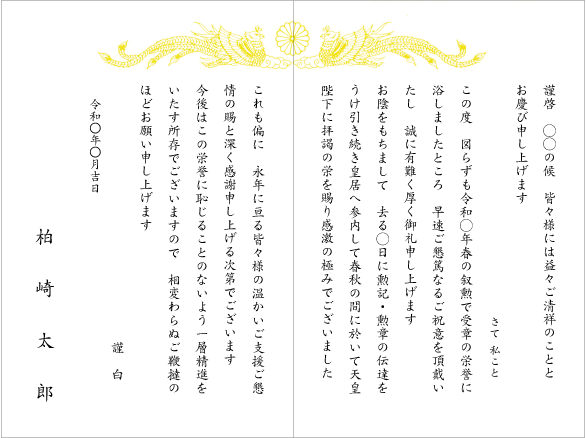 謹啓　〇〇の候　皆々様には益々ご清祥のことと
お慶び申し上げます
さて 私こと
この度　図らずも令和〇年春の叙勲で受章の栄誉に
浴しましたところ　早速ご懇篤なるご祝意を頂戴い
たし　誠に有難く厚く御礼申し上げます
お陰をもちまして　去る〇日に勲記・勲章の伝達を
うけ引き続き皇居へ参内して春秋の間に於いて天皇
陛下に拝謁の栄を賜り感激の極みでございました
これも偏に　永年に亘る皆々様の温かいご支援ご懇
情の賜と深く感謝申し上げる次第でございます
今後はこの栄誉に恥じることのないよう一層精進を
いたす所存でございますので　相変わらぬご鞭撻の
ほどお願い申し上げます
謹　白
令和〇年〇月吉日
柏　崎　太　郎